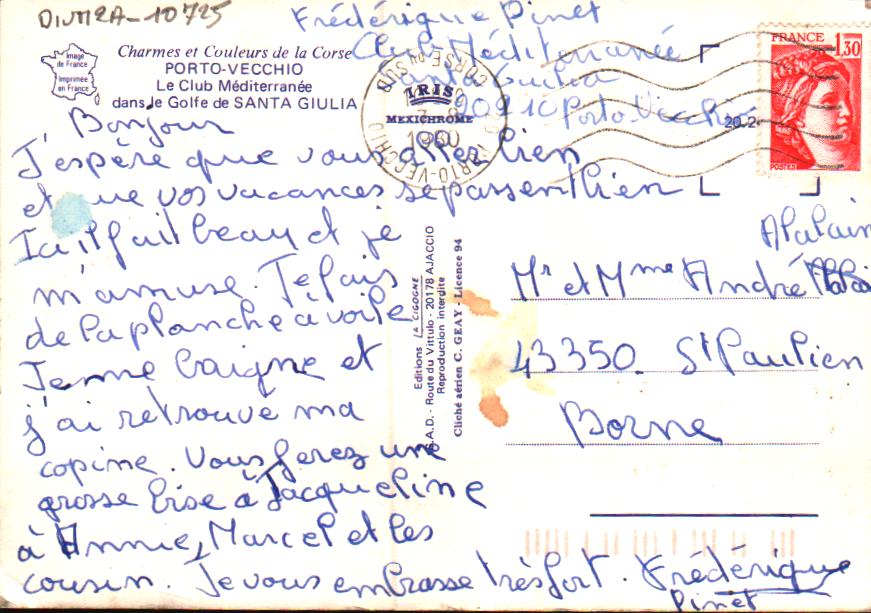 DIVM2A-10725
Frédérique Pinet
Club Méditerranée
Santa Giulia
20210 Porto Vecchio
Image
de France
Imprimée
en France
Charmes et Couleurs de la Corse
PORTO-VECCHIO
Le Club Méditerranée
dans le Golfe de SANTA GIULIA
IRIS
MEXICHROME
PORTO-VECCHIO
CORSE DU SUD
1980
20.2
FRANCE 1,30
POSTES
Bonjour
J'espère que vous allez bien
et que vos vacances se passent bien
Ici il fait beau et je
m'amuse. Je fais
de la planche à voile
Je me baigne et
j'ai retrouvé ma
copine. Vous ferez une
grosse bise à Jacqueline
à Annie, Marcel et les
cousin. Je vous embrasse très fort. Frédérique
Pinet
Editions LA CIGOGNE
S.A.D. - Route du Vittulo - 20178 AJACCIO
Reproduction interdite
Cliché aérien C. GEAY - Licence 94
Alalain
Mr et Mme André
43350 St Paulien
Borne